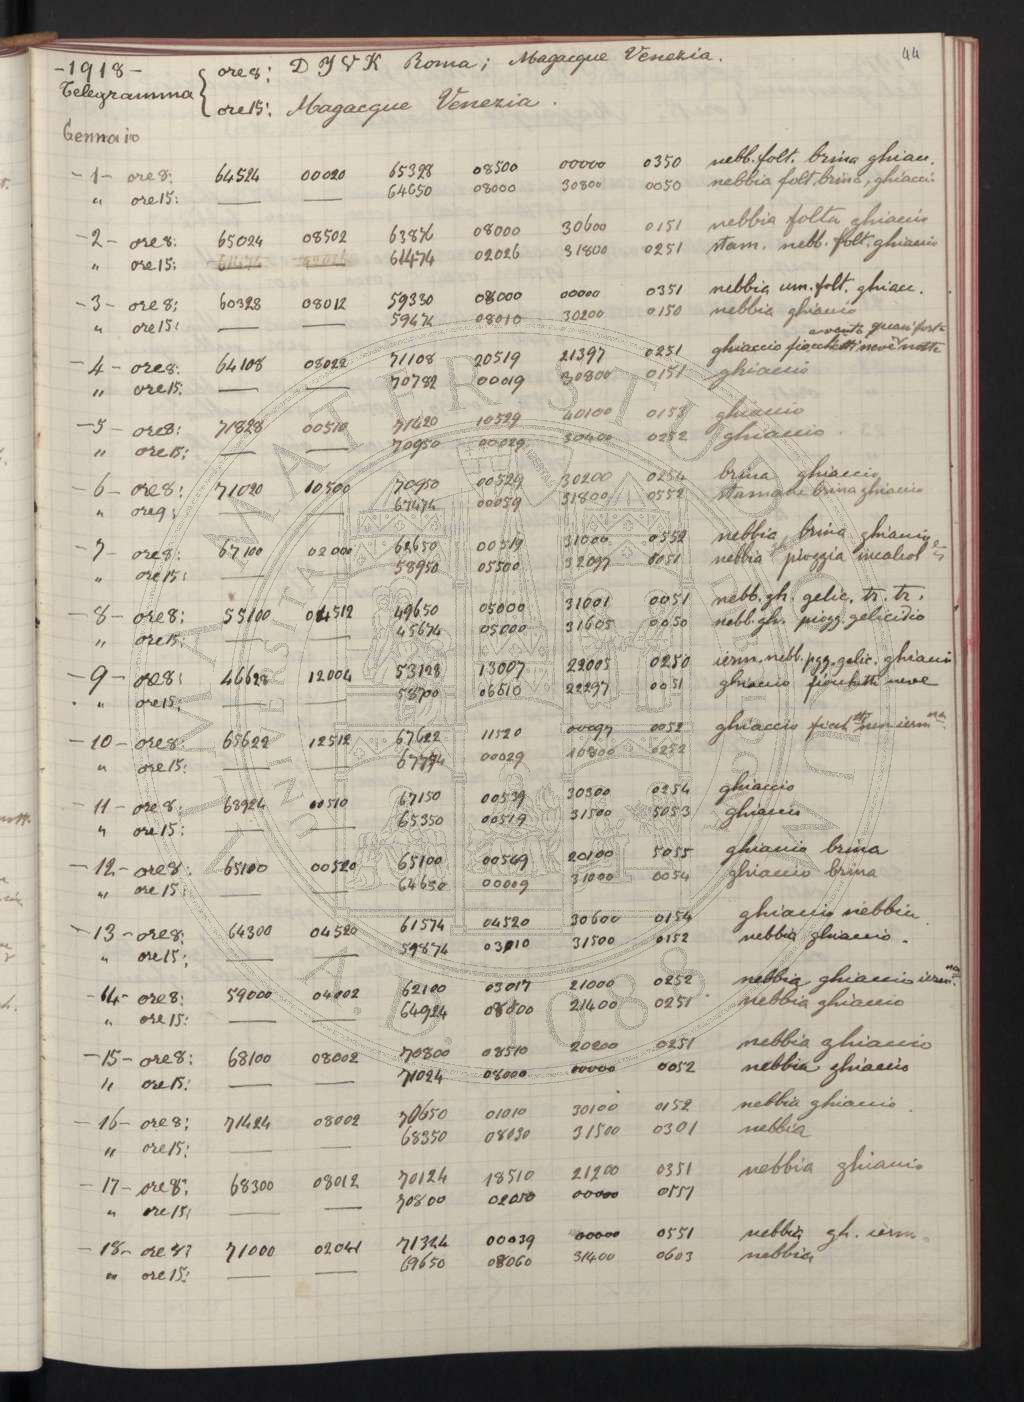 44
-1918-
Telegramma
ore 8: D Y V K Roma; Magacque Venezia.
ore 15: Magacque Venezia.
Gennaio
-1- ore 8: 64524 00020 65328 08500 00000 0350 nebb. folt. brina ghiac.
" ore 15: — — 64650 08000 30800 0050 nebbia folt. brina, ghiacci
-2- ore 8: 65024 08502 63876 08000 30600 0151 nebbia folta ghiaccio
" ore 15: 61474 02026 31800 0251 stam. nebb. folt. ghiaccio
-3- ore 8: 60328 08012 59330 08000 00000 0351 nebbia um. folt. ghiac.
" ore 15: — — 59474 08010 30200 0150 nebbia ghiaccio
-4- ore 8: 64108 08022 71108 20519 21397 0251 ghiaccio fiocchetti neve notte
" ore 15: — — 70782 00019 30800 0151 ghiaccio
-5- ore 8: 71828 00510 71420 10529 40100 0153 ghiaccio
" ore 15: — — 70950 00029 30400 0252 ghiaccio
-6- ore 8: 71020 10500 70950 00529 30200 0254 brina ghiaccio
" ore 9: — — 67474 00059 31800 0552 stamane brina ghiaccio
-7- ore 8: 67100 02000 62650 00519 31000 0552 nebbia, brina ghiaccio
" ore 15: — — 58950 05500 32097 0051 nebbia pioggia
-8- ore 8: 55100 04512 49650 05000 31001 0051 nebb. gh. gelic. tr. tr.
" ore 15: — — 45674 05000 31605 0050 nebb. gh. piogg. gelicidio
-9- ore 8: 46628 12004 53128 13007 22005 0250 ierm. nebb. pgg. gelic. ghiacci
" ore 15: — — 58700 06510 22297 0051 ghiaccio fiocchetti neve
-10- ore 8: 65622 12512 67622 11520 00097 0052 ghiaccio
" ore 15: — — 67774 00029 10800 0252
-11- ore 8: 68924 00510 67150 00539 30300 0254 ghiaccio
" ore 15: — — 65350 00519 31500 5053 ghiaccio
-12- ore 8: 65100 00520 65100 00549 20100 5055 ghiaccio brina
" ore 15: — — 64650 00009 31000 0054 ghiaccio brina
-13- ore 8: 64300 04520 61574 04520 30600 0154 ghiaccio nebbia
" ore 15: — — 59874 03010 31500 0152 nebbia ghiaccio.
-14- ore 8: 59000 04002 62100 03017 21000 0252 nebbia ghiaccio
" ore 15: — — 64924 08000 21400 0251 nebbia ghiaccio
-15- ore 8: 68100 08002 70800 08510 20200 0251 nebbia ghiaccio
" ore 15: — — 71024 08000 00000 0052 nebbia ghiaccio
-16- ore 8: 71424 08002 70650 01010 30100 0152 nebbia ghiaccio.
" ore 15: — — 68350 08030 31500 0301 nebbia
-17- ore 8: 68300 08012 70124 18510 21200 0351 nebbia ghiaccio
" ore 15: — — 70800 02050 00000 0551
-18- ore 8: 71000 02041 71324 00039 00000 0551 nebbia gh. ierm.
" ore 15: — — 69650 08060 31400 0603 nebbia
ALMA MATER STUDIORUM
UNIVERSITA DI BOLOGNA
A.D. 1088